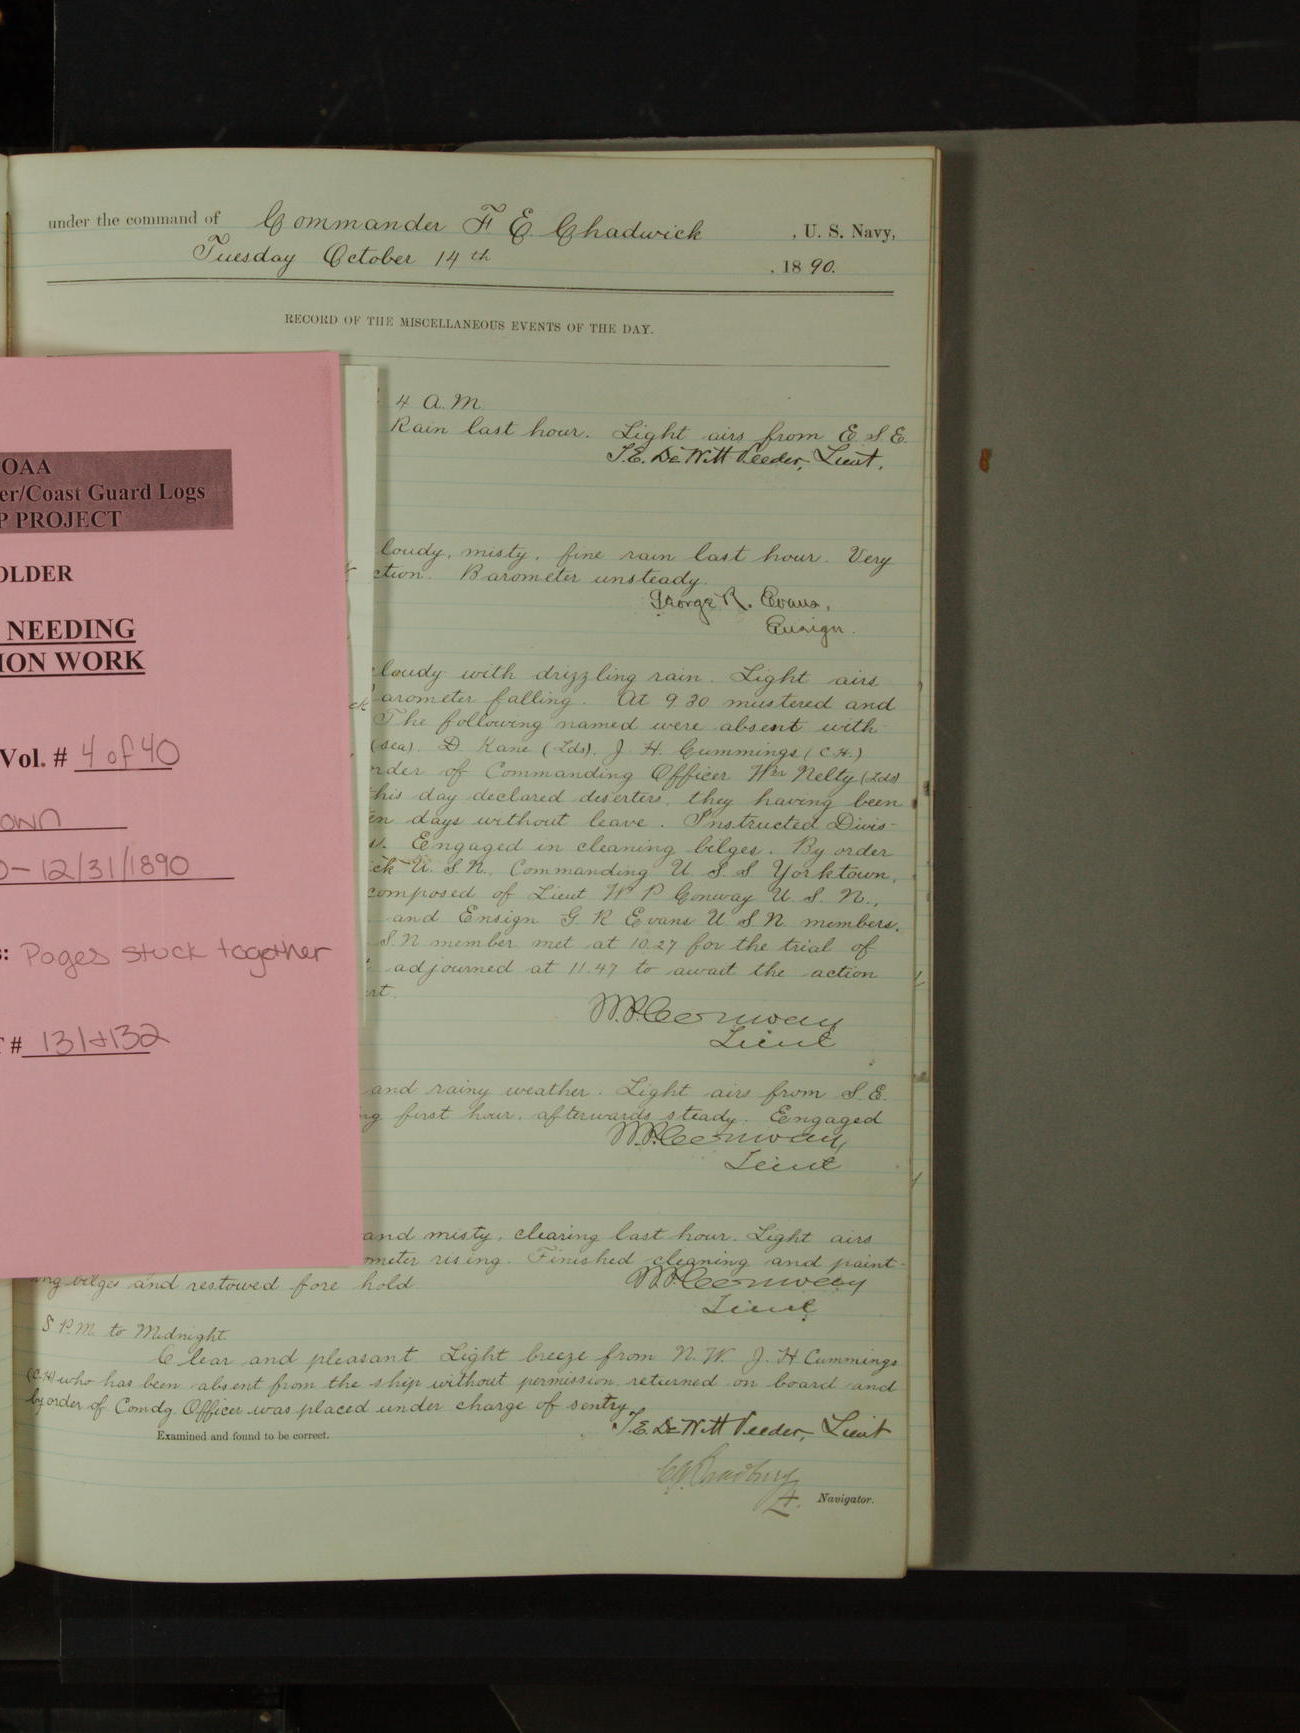 under the command of Commander F E Chadwick , U. S. Navy,
Tuesday October 14th , 1890.
RECORD OF THE MISCELLANEOUS EVENTS OF THE DAY.
4 A.M.
Rain last hour. Light airs from E.S.E.
T.E. DeWitt Veeder, Lieut.
loudy, misty, fine rain last hour. Very
ction. Barometer unsteady.
George R. Evans,
Ensign.
cloudy with drizzling rain. Light airs
arometer falling. At 9 30 mustered and
The following named were absent with
(Sea). D. Kane (Lds). J. H. Cummings (C.H.)
rder of Commanding Officer Wm Nelty (Lds)
this day declared deserters, they having been
en days without leave. Instructed Divis-
Engaged in cleaning bilges. By order
ick U.S.N., Commanding U.S.S Yorktown,
composed of Lieut W P Conway U.S.N.,
and Ensign G R Evans U S N members.
S.N member met at 10.27 for the trial of
adjourned at 11.47 to await the action
rt.
W.P. Conway
Lieut
and rainy weather. Light airs from S.E.
ng first hour, afterwards steady. Engaged
W.P. Conway
Lieut
and misty, clearing last hour. Light airs
ometer rising. Finished cleaning and paint-
ing bilges and restowed fore hold
W.P. Conway
Lieut
8 P.M. to Midnight.
Clear and pleasant Light breeze from N.W. J. H Cummings
(C.H) who has been absent from the ship without permission returned on board and
by order of Comdg. Officer was placed under charge of sentry.
T.E. DeWitt Veeder, Lieut
Examined and found to be correct.
Navigator.
OAA
er/Coast Guard Logs
P PROJECT
OLDER
NEEDING
ION WORK
Vol. # 4 of 40
own
0 - 12/31/1890
s: Pages stuck together
T # 131+132